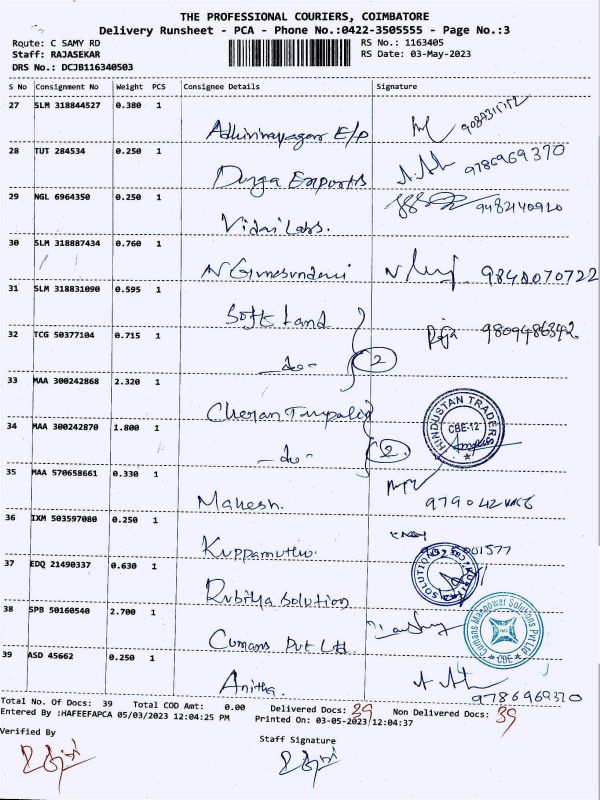 THE PROFESSIONAL COURIERS, COIMBATORE
Delivery Runsheet - PCA - Phone No.:0422-3505555 - Page No.:3
Route: C SAMY RD RS No.: 1163405
Staff: RAJASEKAR RS Date: 03-May-2023
DRS No.: DCJB116340503
S No Consignment No Weight PCS Consignee Details Signature
27 SLM 318844527 0.380 1
28 TUT 284534 0.250 1 Durga Exports 9786969370
29 NGL 6964350 0.250 1 Vidai Labs.
30 SLM 318887434 0.760 1 N Gunasundari 9840070722
31 SLM 318831090 0.595 1 Soft Land
32 TCG 50377104 0.715 1 -do- 2 Raja 9809486342
33 MAA 300242868 2.320 1 Cheran HINDUSTAN TRADERS CBE-12
34 MAA 300242870 1.800 1 -do- 2
35 MAA 570658661 0.330 1 Mahesh.
36 IXM 503597080 0.250 1 Kuppamuthu.
37 EDQ 21490337 0.630 1 Rubiya Solution SOLUTION
38 SPB 50160540 2.700 1 Cumans Pvt Ltd Cumans Manpower Solutions Pvt Ltd CBE
39 ASD 45662 0.250 1 Anitha. 9786969370
Total No. Of Docs: 39 Total COD Amt: 0.00 Delivered Docs: 39 Non Delivered Docs: 39
Entered By :HAFEEFAPCA 05/03/2023 12:04:25 PM Printed On: 03-05-2023 12:04:37
Verified By Staff Signature